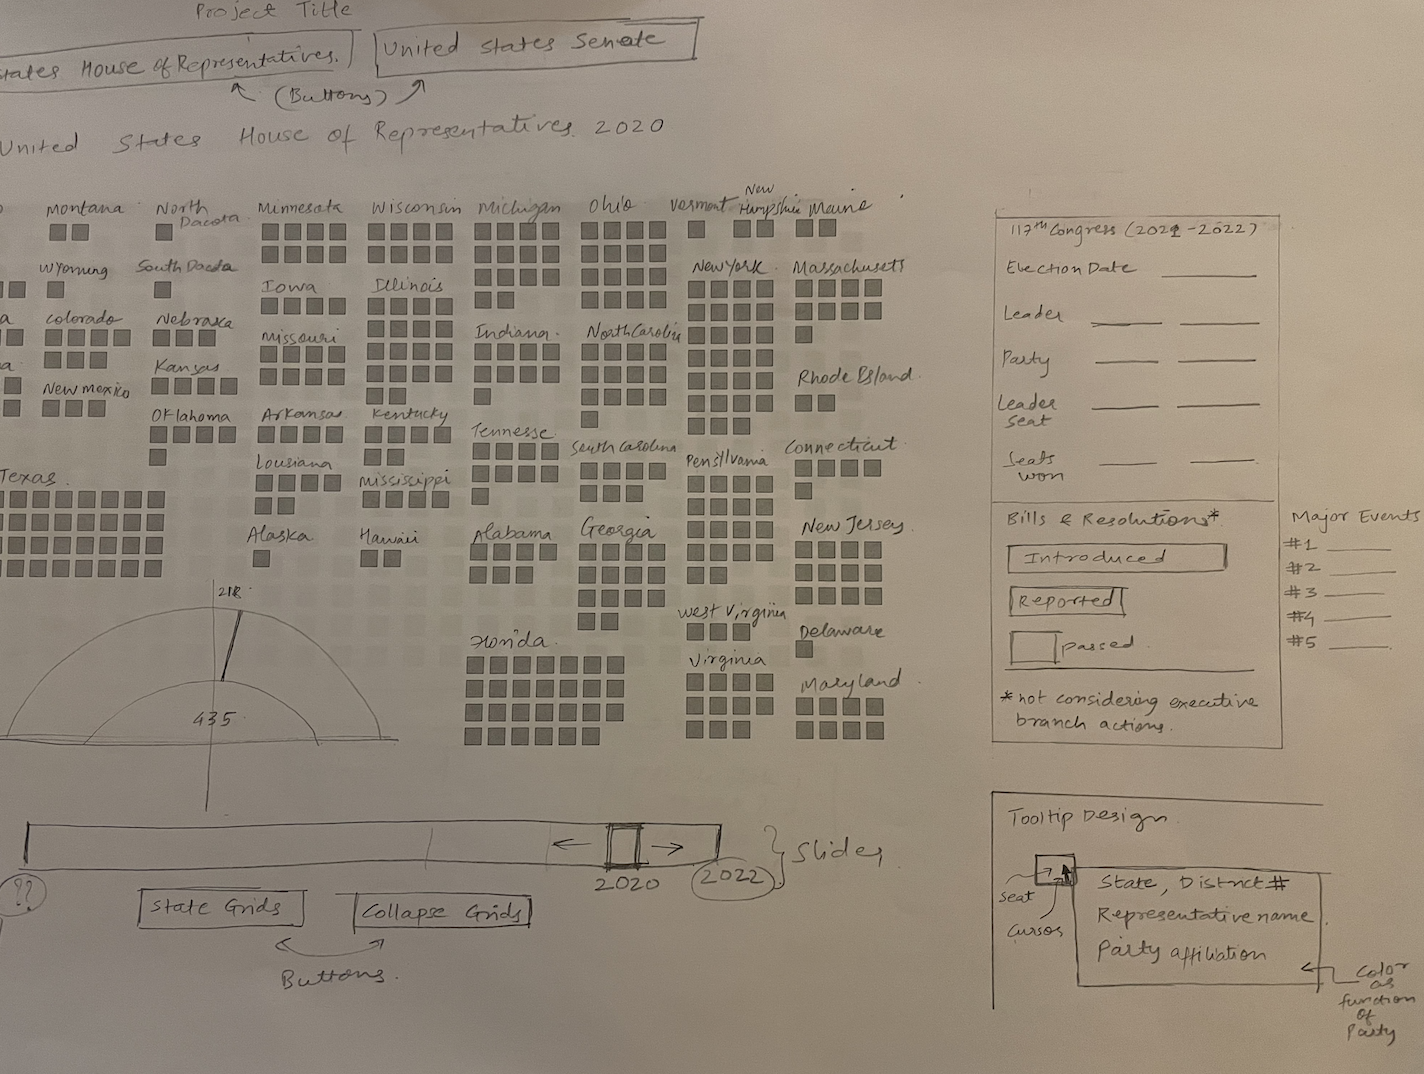 Project Title
States House of Representatives.
United States Senate
(Buttons)
United States House of Representatives 2020
Montana
North
Dacota
Minnesota
Wisconsin
Michigan
Ohio
Vermont
New
Hampshire
Maine
Wyoming
South Dacota
Iowa
Illinois
New York
Massachusetts
a
Colorado
Nebraska
Missouri
Indiana
North Carolin
a
New mexico
Kansas
Rhode Island
Oklahoma
Arkansas
Kentucky
Tennesse
South Carolina
Pensylvania
Connecticut
Texas
Lousiana
Mississippi
Alaska
Hawaii
Alabama
Georgia
New Jersey
West Virginia
Delaware
Florida
Virginia
Maryland
218
435
117th Congress (2021-2022)
Election Date
Leader
Party
Leader
seat
Seats
won
Bills & Resolutions*
Introduced
Reported
Passed
*not considering executive
branch actions.
Major Events
#1
#2
#3
#4
#5
??
2020
2022
Slider
State Grids
Collapse Grids
Buttons.
Tooltip Design
Seat
Cursor
State, District #
Representative name
Party affiliation
Color
as
function
of
Party